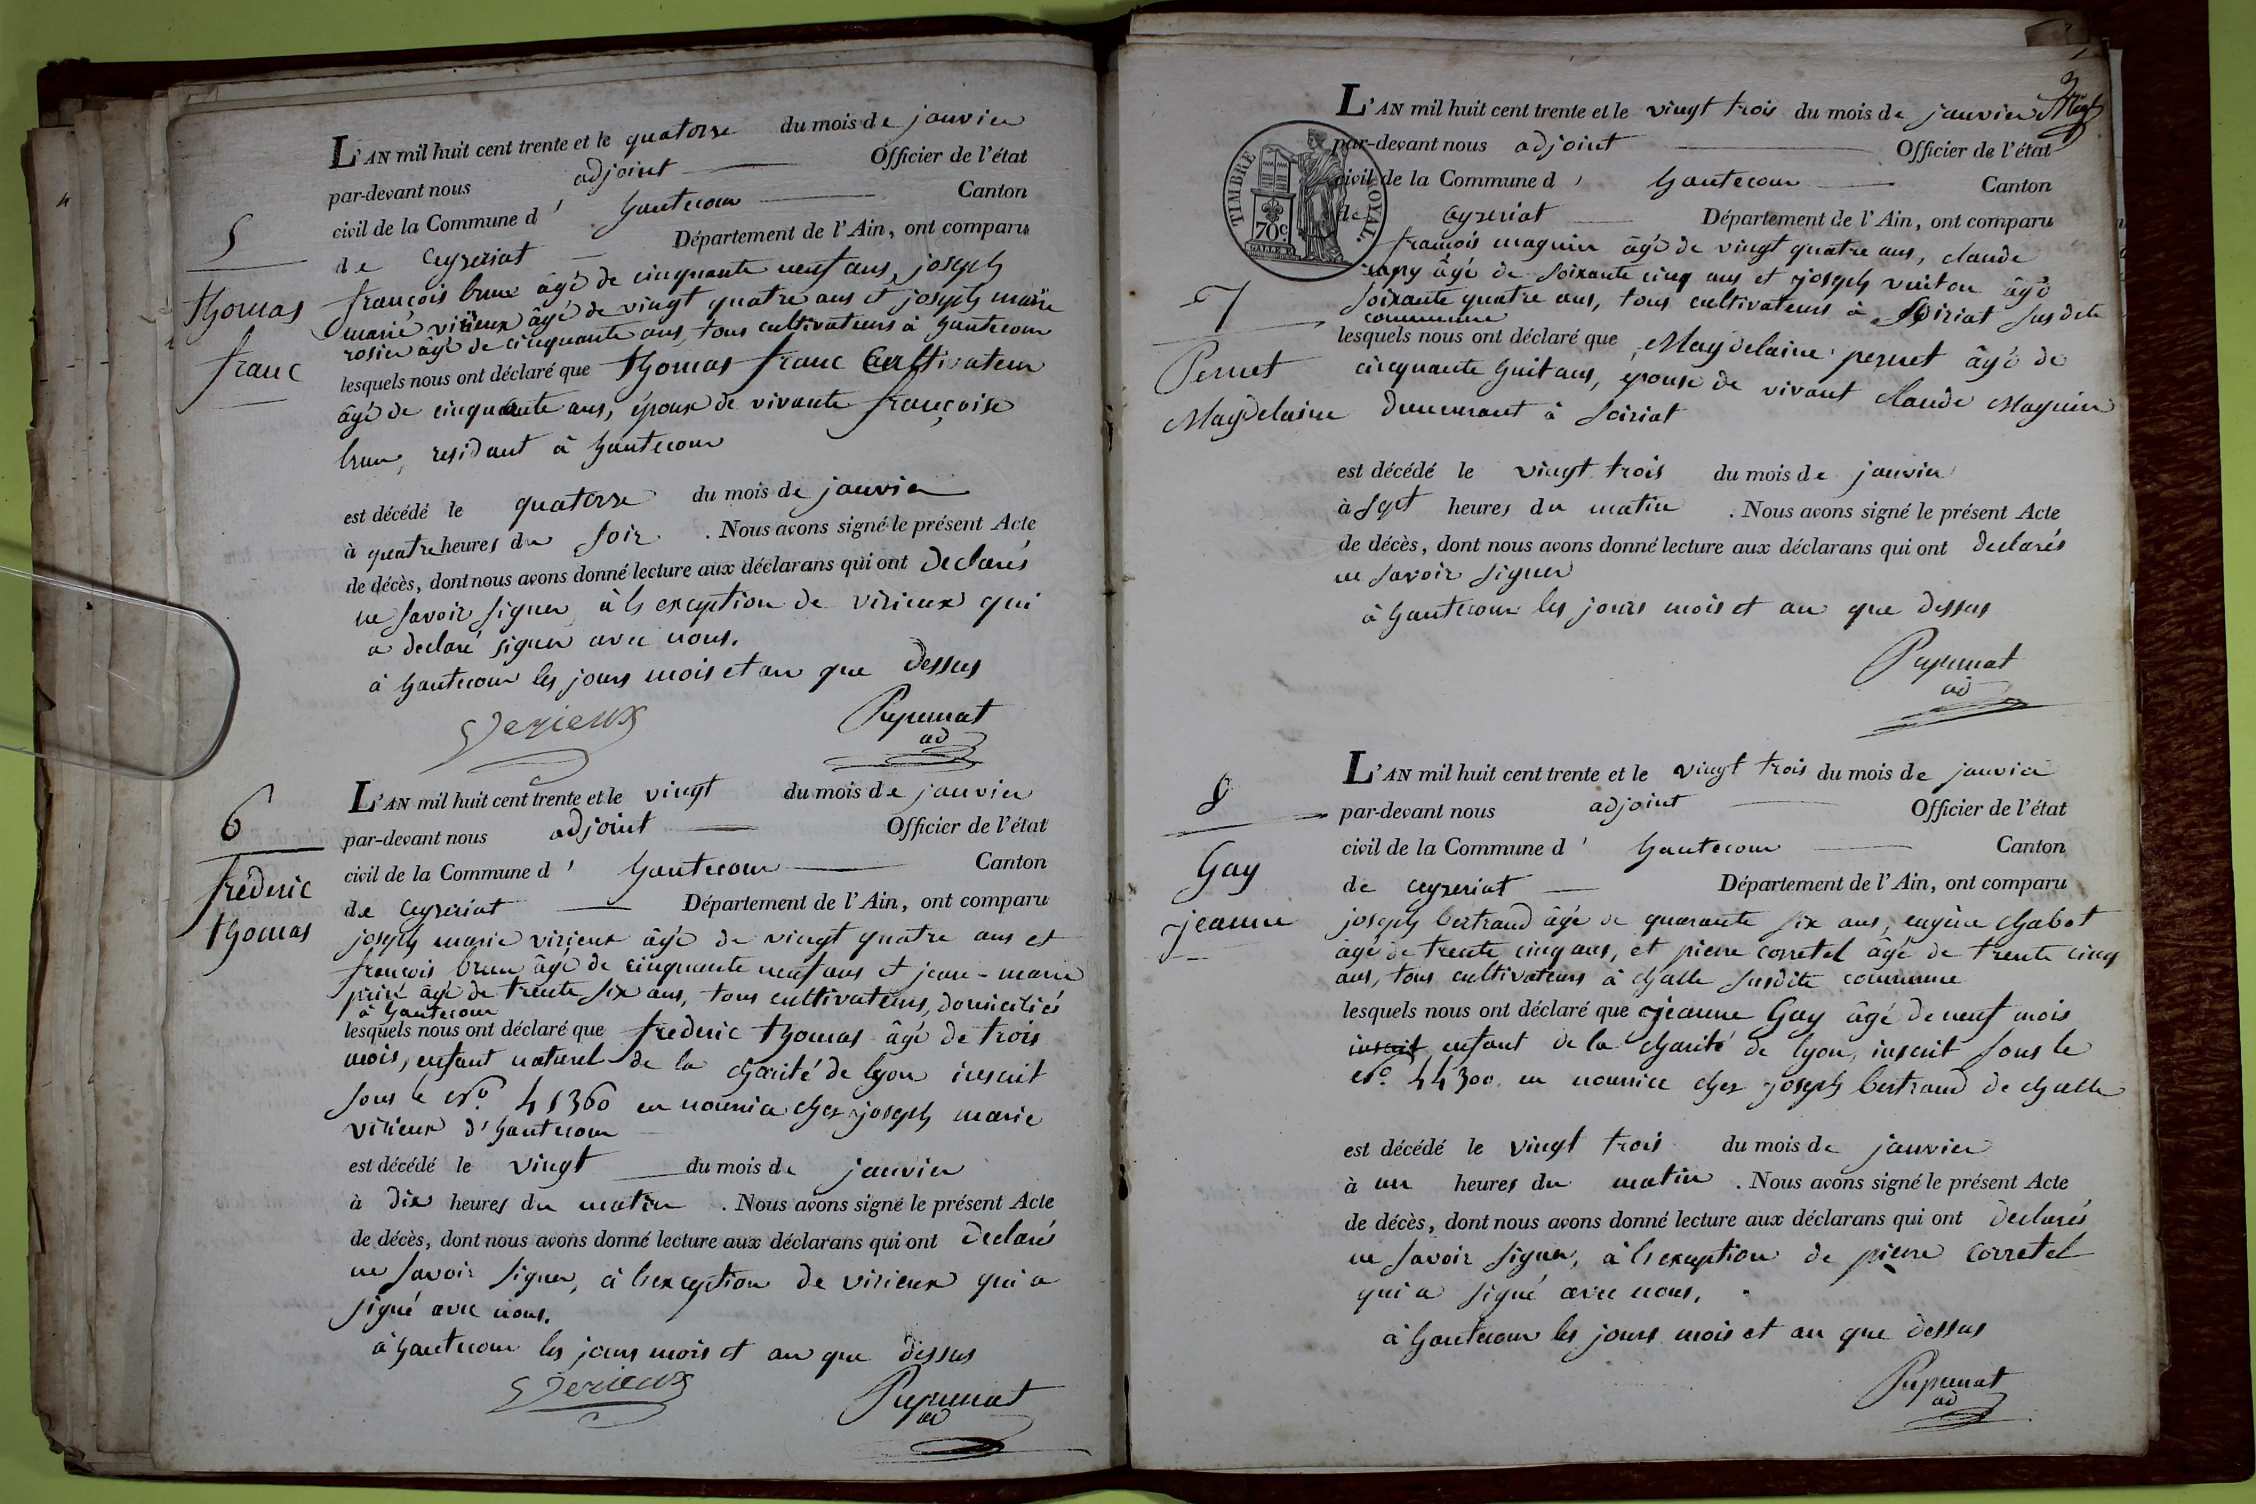 4
5
thomas
franc
L'AN mil huit cent trente et le quatorze du mois de janvier
par-devant nous adjoint Officier de l'état
civil de la Commune d' hautecour Canton
de Ceyzeriat Département de l'Ain, ont comparu
françois brun âgé de cinquante neuf ans, joseph
marie virieux âgé de vingt quatre ans et joseph marie
rosier âgé de cinquante ans, tous cultivateurs à hautecour
lesquels nous ont déclaré que thomas franc Cultivateur
âgé de cinquante ans, époux de vivante françoise
brun, residant à hautecour
est décédé le quatorze du mois de janvier
à quatre heures du soir . Nous avons signé le présent Acte
de décès, dont nous avons donné lecture aux déclarans qui ont declarés
ne savoir signer à l'exception de virieux qui
a declaré signer avec nous.
à hautecour les jours mois et an que dessus
Verieux Pupunat
ad
6
frederic
thomas
L'AN mil huit cent trente et le vingt du mois de janvier
par-devant nous adjoint Officier de l'état
civil de la Commune d' hautecour Canton
de Ceyzeriat Département de l'Ain, ont comparu
joseph marie virieux âgé de vingt quatre ans et
françois brun âgé de cinquante neuf ans et jean-marie
âgé de trente six ans, tous cultivateurs, domiciliés
à hautecour
lesquels nous ont déclaré que frederic thomas âgé de trois
mois, enfant naturel de la charité de lyon inscrit
sous le Nro. 45360 en nourrice chez joseph marie
virieux d'hautecour
est décédé le vingt du mois de janvier
à dix heures du matin . Nous avons signé le présent Acte
de décès, dont nous avons donné lecture aux déclarans qui ont declaré
ne savoir signer, à l'exception de virieux qui a
signé avec nous.
à hautecour les jours mois et an que dessus
Verieux Pupunat
ad
3
TIMBRE ROYAL.
70c
7
Pernet
Magdelaine
L'AN mil huit cent trente et le vingt trois du mois de janvier
par-devant nous adjoint Officier de l'état
civil de la Commune d' hautecour Canton
de Ceyzeriat Département de l'Ain, ont comparu
françois magnin âgé de vingt quatre ans, claude
âgé de soixante cinq ans et joseph vuiton âgé
soixante quatre ans, tous cultivateurs à Soiriat susdite
commune
lesquels nous ont déclaré que Magdelaine pernet âgé de
cinquante huit ans, épouse de vivant claude Magnin
demeurant à soiriat
est décédé le vingt trois du mois de janvier
à sept heures du matin . Nous avons signé le présent Acte
de décès, dont nous avons donné lecture aux déclarans qui ont declarés
ne savoir signer
à hautecour les jours mois et an que dessus
Pupunat
ad
8
Gay
jeanne
L'AN mil huit cent trente et le vingt trois du mois de janvier
par-devant nous adjoint Officier de l'état
civil de la Commune d' hautecour Canton
de Ceyzeriat Département de l'Ain, ont comparu
joseph bertrand âgé de quarante six ans, eugène chabot
âgé de trente cinq ans, et pierre corretel âgé de trente cinq
ans, tous cultivateurs à challe susdite commune
lesquels nous ont déclaré que jeanne Gay âgé de neuf mois
inscrit enfant de la charité de lyon, inscrit sous le
Nro. 44300 en nourrice chez joseph bertrand de challe
est décédé le vingt trois du mois de janvier
à un heures du matin . Nous avons signé le présent Acte
de décès, dont nous avons donné lecture aux déclarans qui ont declarés
ne savoir signer, à l'exception de pierre corretel
qui a signé avec nous,
à hautecour les jours mois et an que dessus
Pupunat
ad